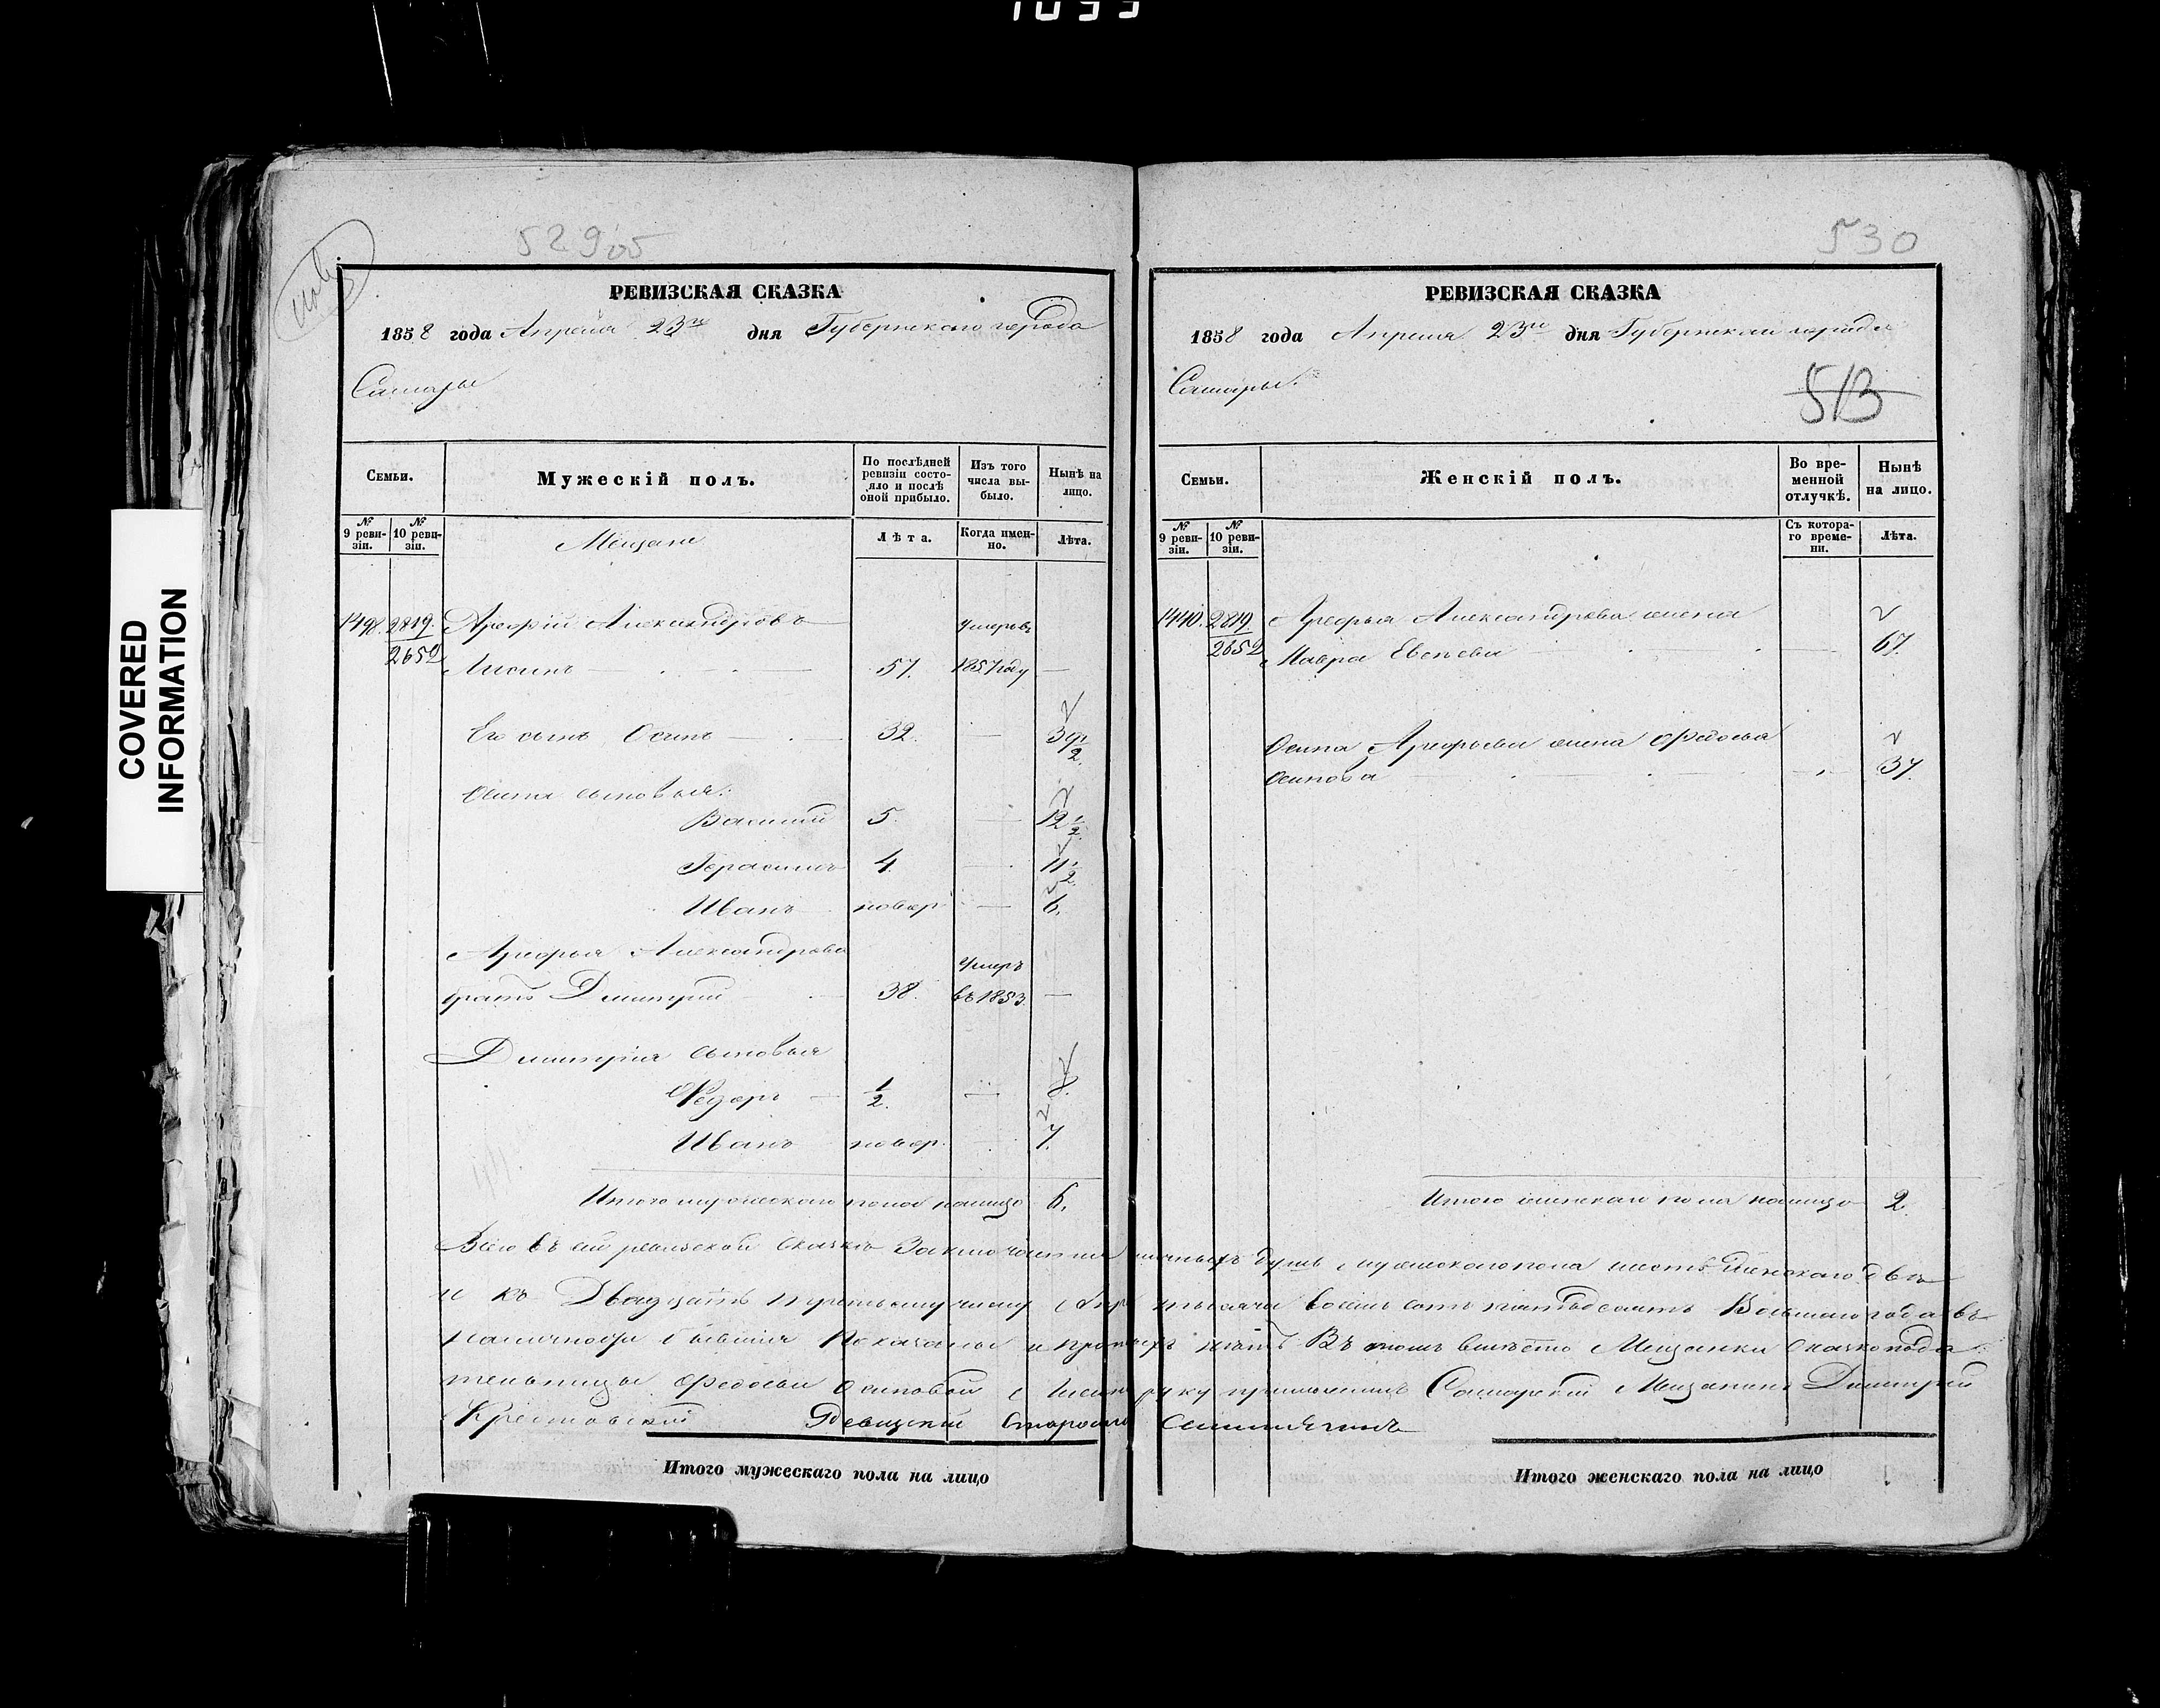 1033
COVERED
INFORMATION
529об
РЕВИЗСКАЯ СКАЗКА
1858 года Апреля 23го дня Губернскаго города
Самары
Семьи.
Мужескій полъ.
По послѣдней ревизіи состояло и послѣ оной прибыло.
Изъ того числа выбыло.
Нынѣ на лицо.
№ 9 ревизіи.
№ 10 ревизіи.
Мещане
Лѣта.
Когда именно.
Лѣта.
1498. 2819. Арефій Александровъ Умеръ въ
2652
57. 1857 году —
Его сынъ Осипъ — 32. —
Осипа сыновья:
Василий 5. — 12 1/2
Герасимъ 4. — 11 1/2
Иванъ новор — 6.
Арефья Александрова
братъ Дмитрий — 38. Умеръ въ 1853 —
Дмитрия сыновья
Федоръ — 1/2. — 8.
Иванъ новор. 7.
Итого мужескаго пола налицо 6.
530
РЕВИЗСКАЯ СКАЗКА
1858 года Апреля 23го дня Губернскаго города
Самары.
513
Семьи.
Женскій полъ.
Во временной отлучкѣ.
Нынѣ на лицо.
№ 9 ревизіи.
№ 10 ревизіи.
Съ котораго времени.
Лѣта.
1440. 2819 Арефья Александрова жена
2652 Мавра — 67.
Осипа Арефьева жена Федосья
Осипова — 37.
Итого женскаго пола налицо 2.
Всего въ сей ревизской сказке заключается душъ мужескаго пола шесть женскаго две
и къ Двадцать третьему числу тысяча восемь сотъ пятьдесятъ Восьмаго года въ
наличности бывшия Показаны и нетъ Въ томъ вместо Мещанки сказкопода
тельницы Федосьи Осиповой руку приложилъ Самарский Мещанинъ Дмитрий
Крестовский староста
Итого мужескаго пола на лицо
Итого женскаго пола на лицо